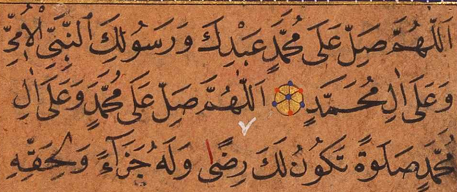 اَللّٰهُمَّ صَلِّ عَلٰى مُحَمَّدٍ عَبْدِكَ وَرَسُولِكَ النَّبِيِّ الْاُمِّيِّ
وَعَلٰى اٰلِ مُحَمَّدٍ اَللّٰهُمَّ صَلِّ عَلٰى مُحَمَّدٍ وَعَلٰى اٰلِ
مُحَمَّدٍ صَلٰوةً تَكُونُ لَكَ رِضًى وَلَهُ جَزَآءً وَلِحَقِّهِ